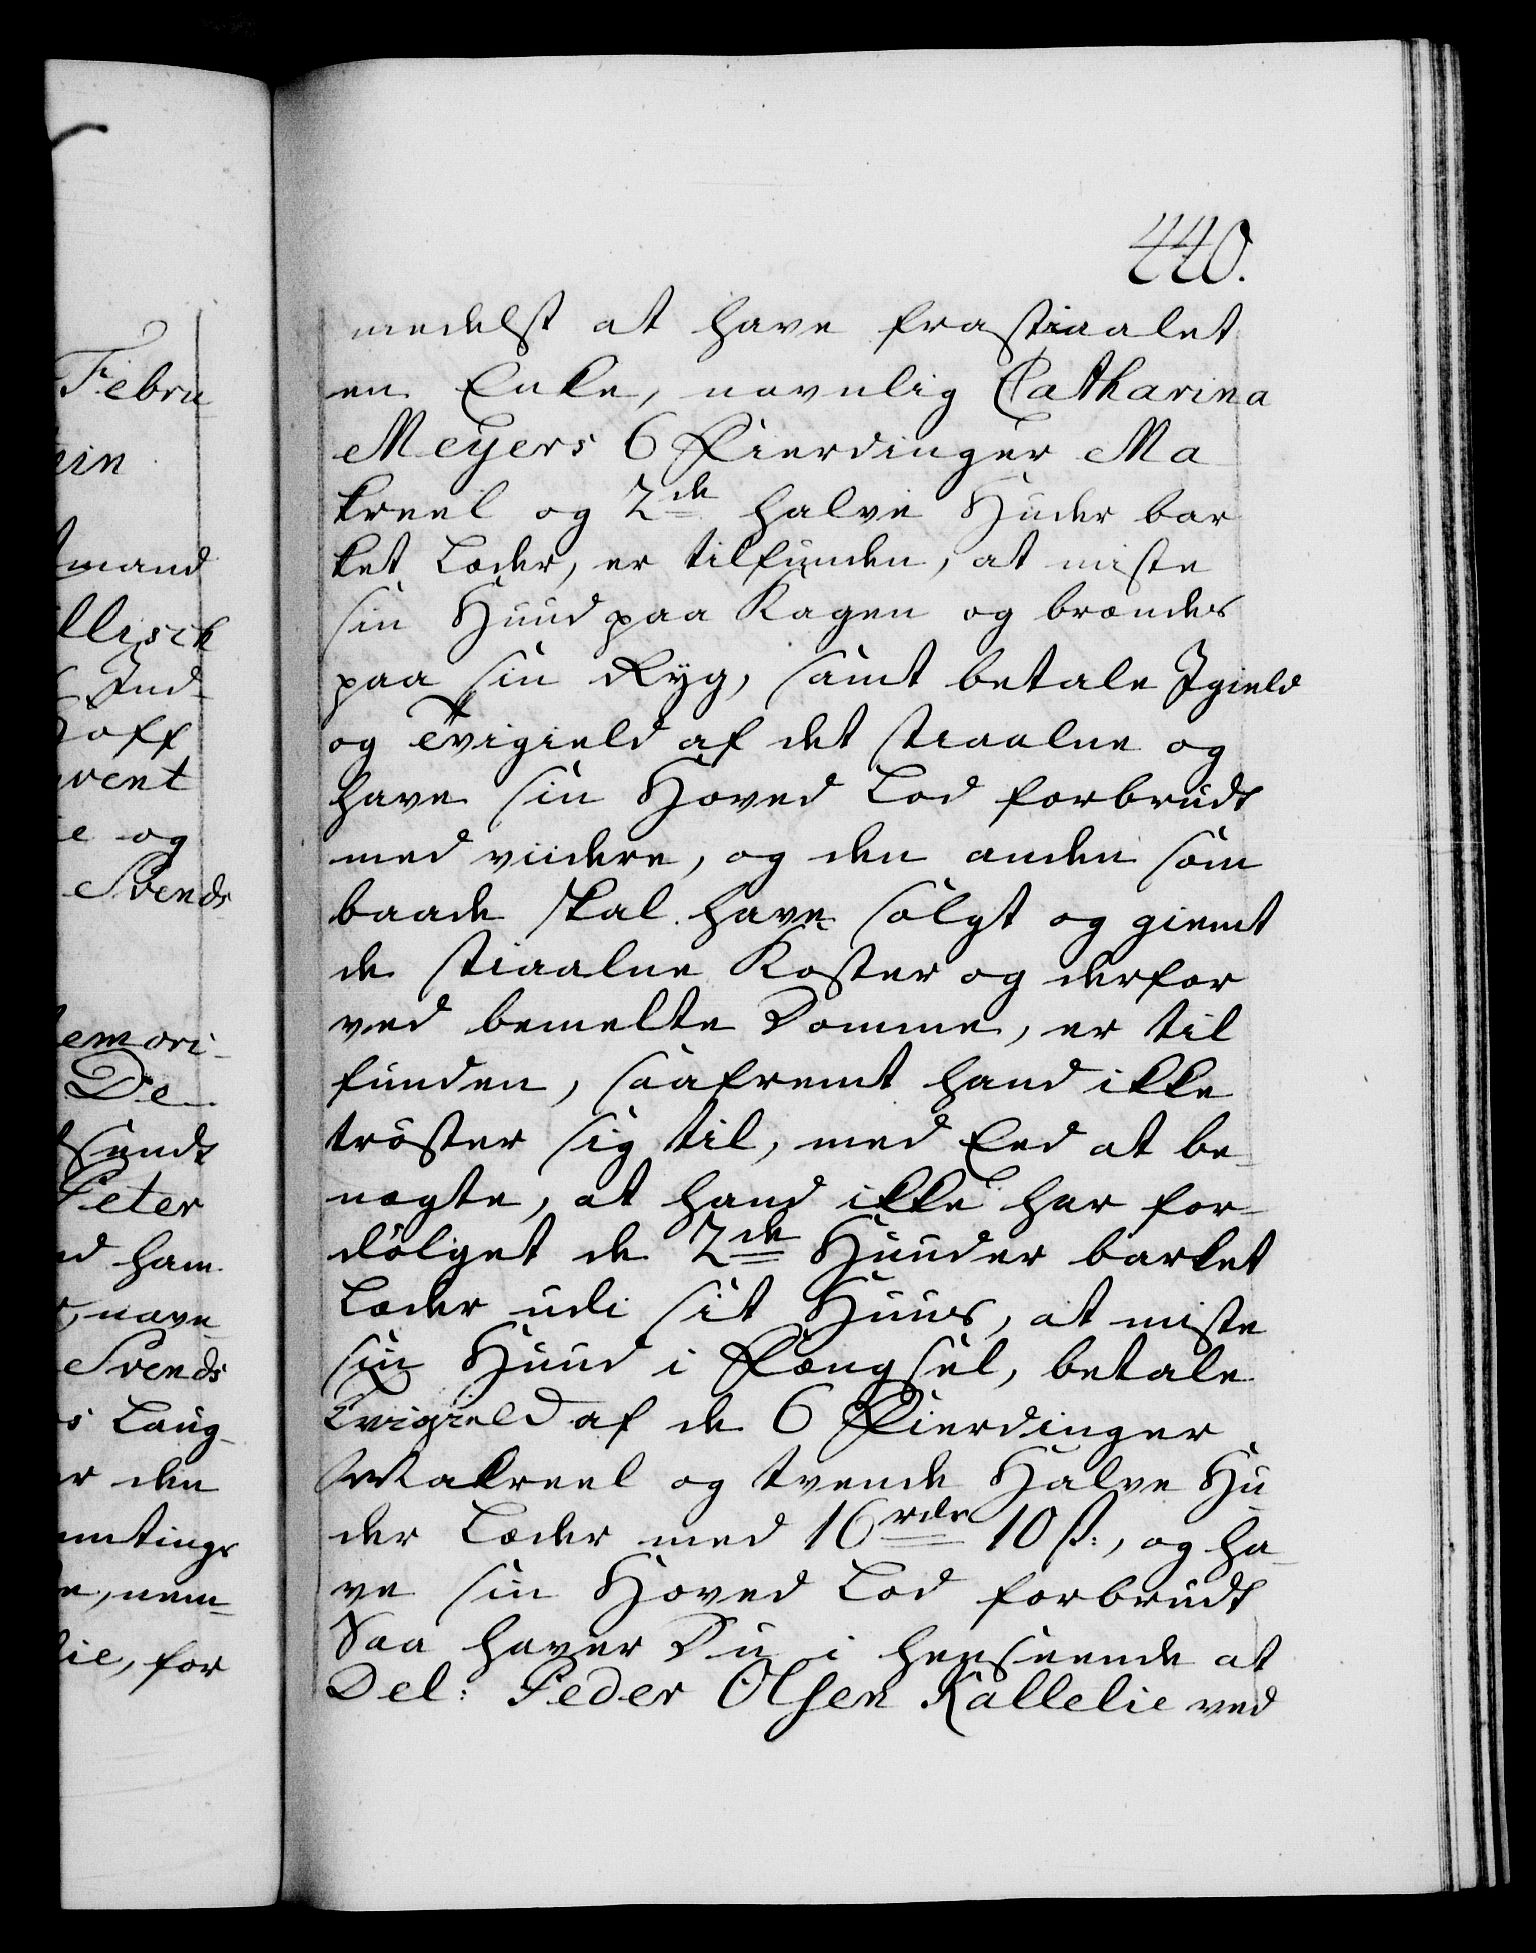 440.
medelst at have frastiaalet
en Enke, navnlig Catharina
Meyers 6 Fierdinger Ma
kreel og 2de halve Huder bar
ket Læder, er tilfunden, at miste
sin Huud paa Kagen og brændes
paa sin Ryg, samt betale Igield
og Tvigield af det stiaalne og
have sin Hoved Lod forbrudt
med viidere, og den anden som
baade skal have sölgt og giemt
de stiaalne Koster og derfor
ved bemelte Domme, er til
funden, saafremt hand ikke
tröster sig til, med Eed at be-
nægte, at hand ikke har for-
dölget de 2de Huuder barket
Læder udi sit Huus, at miste
sin Huud i Fængsel, betale
Tvigield af de 6 Fierdinger
Makreel og tvende Halve Hu
der Læder med 16 rdr 10 s:, og ha-
ve sin Hoved Lod forbrudt
Saa haver Du i henseende at
Del: Peder Olsen Kallelie ved
Febru
mand
Ind-
og
Svends
emori-
De-
Peter
ham
nave-
Svends
Laug-
den
amtings
nem-
lie, for